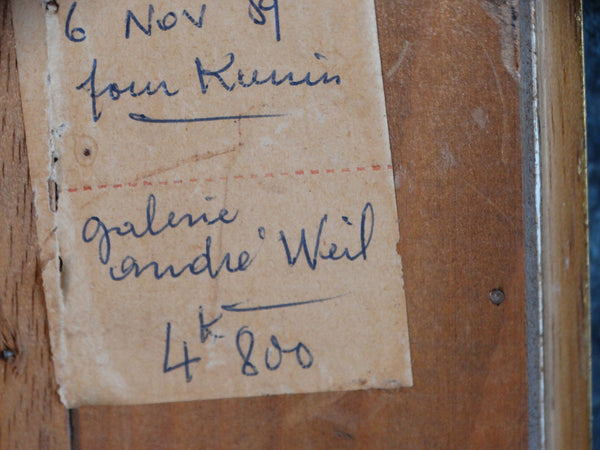 6 Nov 89
four Kunin
galerie
andré Weil
4k 800